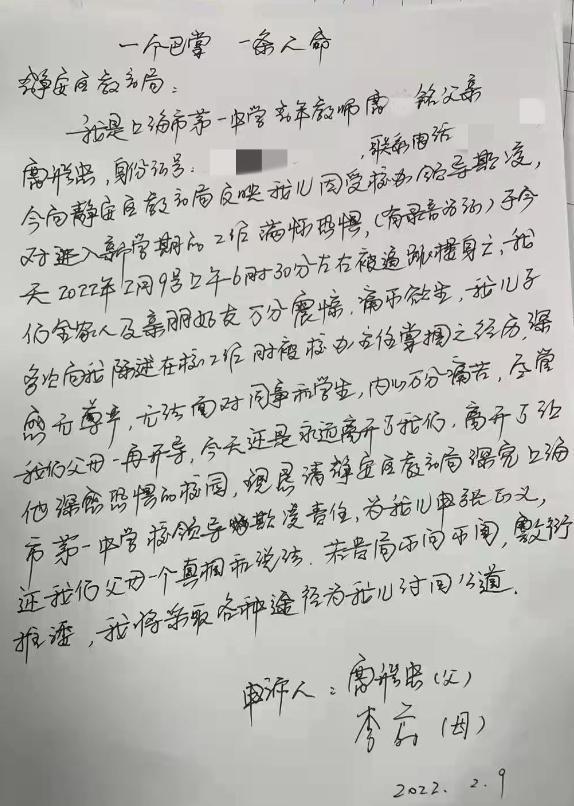 一个巴掌 一条人命
静安区教育局:
我是上海市第一中学青年教师 铭父亲
身份证号: ,联系电话
今向静安区教育局反映我儿因受校办领导欺凌,
对进入新学期的工作满怀恐惧,(有录音为证)于今
天2022年2月9号上午6时30分左右被逼跳楼身亡,我
们全家人及亲朋好友万分震惊,痛不欲生,我儿子
多次向我陈述在校工作时被校办主任掌掴之经历,深
感无尊严,无法面对同事和学生,内心万分痛苦,尽管
我们父母一再开导,今天还是永远离开了我们,离开了让
他深感恐惧的校园,现恳请静安区教育局深究上海
市第一中学校领导欺凌责任,为我儿申张正义,
还我们父母一个真相和说法.若贵局不问不闻,敷衍
推诿,我将采取各种途径为我儿讨回公道.
申诉人: (父)
李 (母)
2022. 2.9